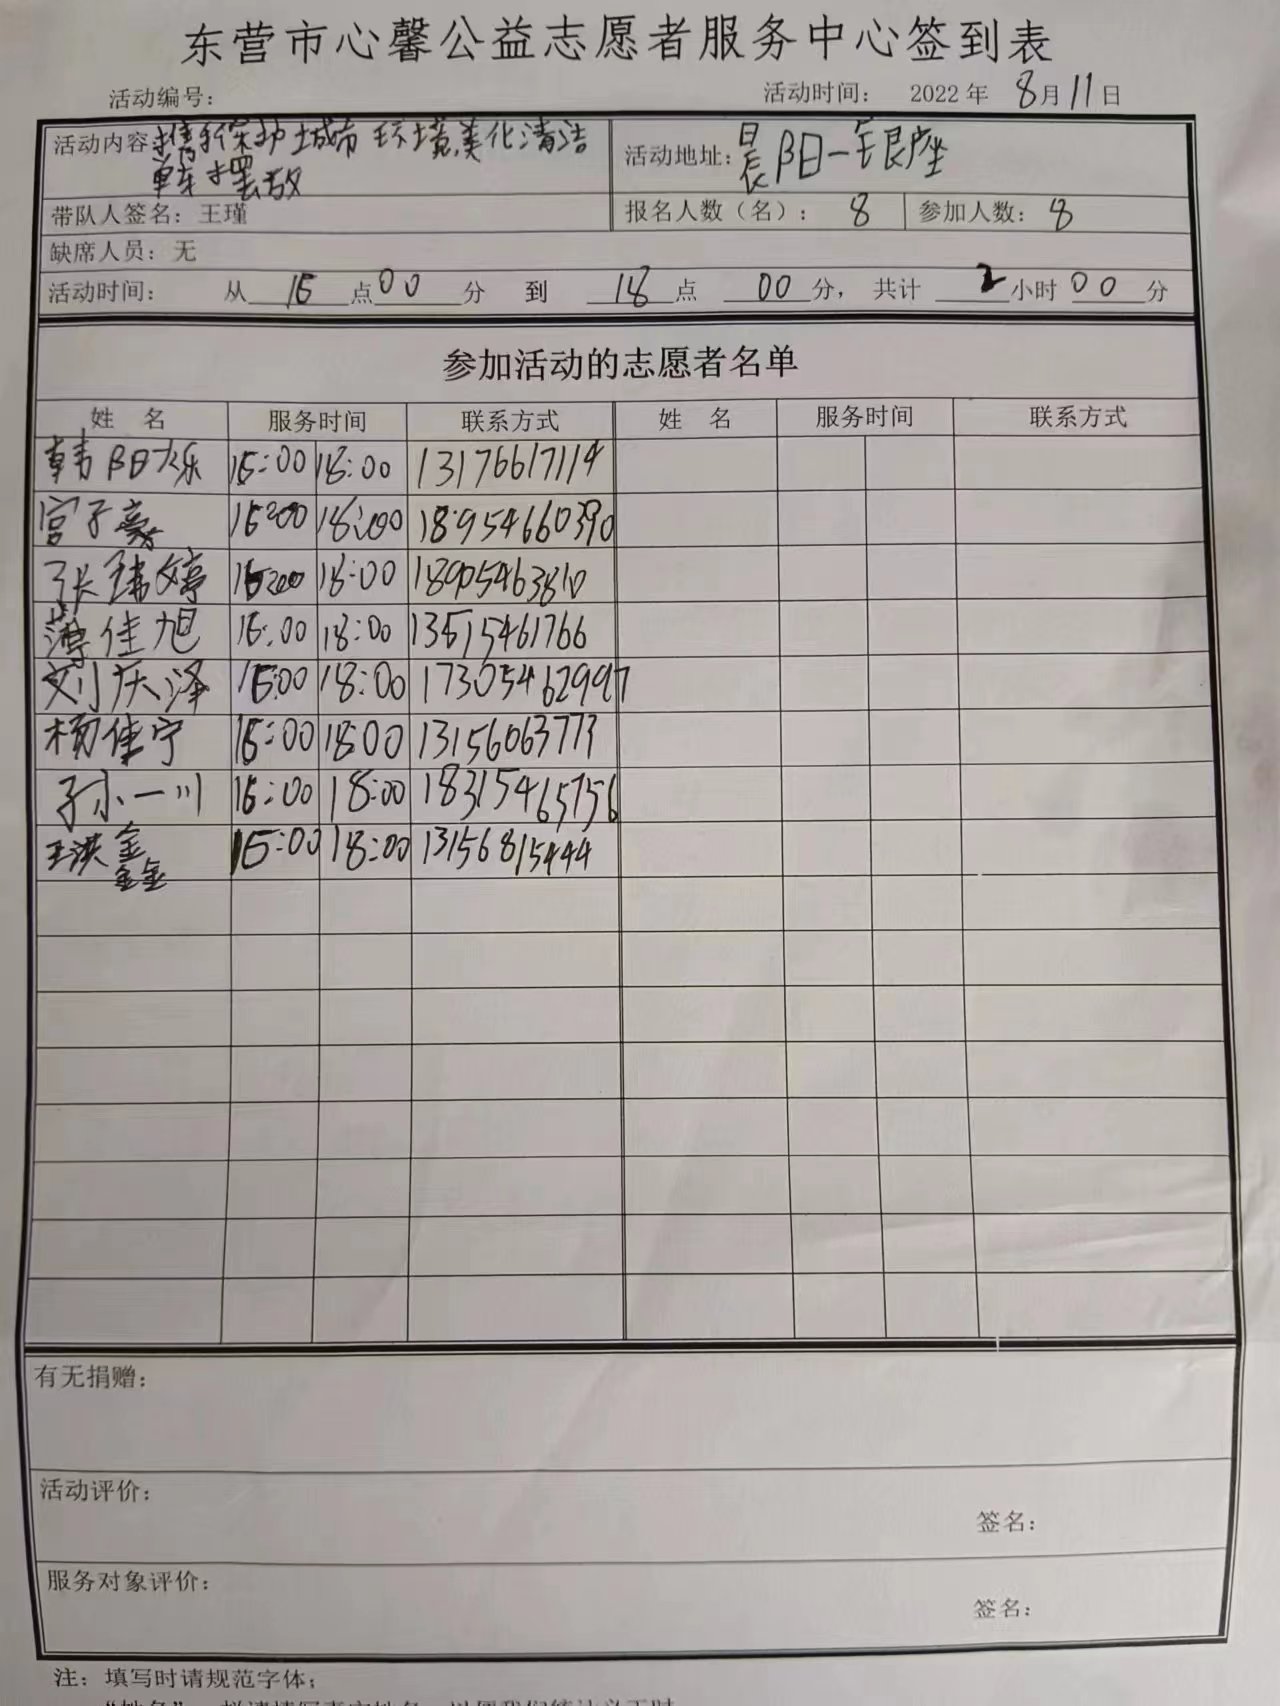 东营市心馨公益志愿者服务中心签到表
活动编号： 活动时间： 2022年 8月11日
活动内容： 保护城市环境美化清洁
单车摆放
活动地址：晨阳一银座
带队人签名：王瑾 报名人数（名）： 8 参加人数：8
缺席人员：无
活动时间： 从 点00分 到 18点 00分， 共计 2小时00分
参加活动的志愿者名单
姓 名 服务时间 联系方式 姓 名 服务时间 联系方式
韩阳乐 18:00 13176617114
宫子豪 18:00 18954660390
张瑋婷 18:00 18905463810
薄佳旭 18:00 13515461766
刘庆泽 18:00 17305462997
杨佳宁 18:00 13156063773
孙一川 18:00 18315465756
王洪鑫 18:00 13156815444
有无捐赠：
活动评价：
签名：
服务对象评价：
签名：
注：填写时请规范字体；